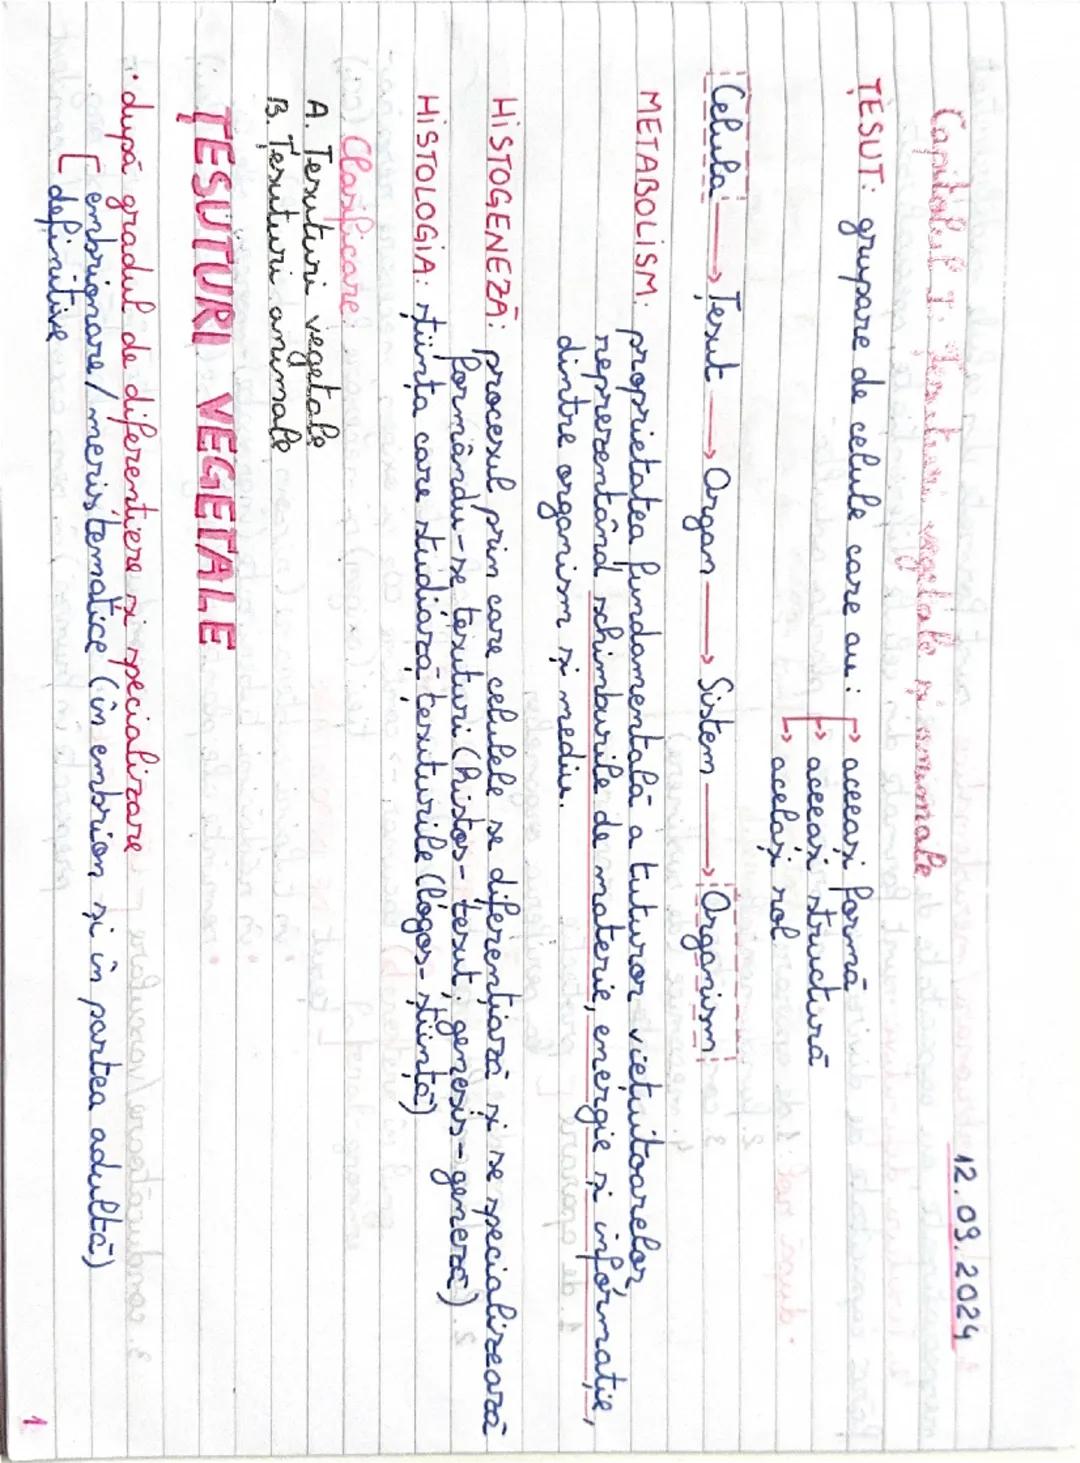 12.09.2024
Capitolul I. Țesuturi vegetale și animale
ȚESUT: grupare de celule care au: → aceeași formă
→ aceeași structură
→ același rol
Celulă → Țesut → Organ → Sistem → Organism
METABOLISM: proprietatea fundamentală a tuturor viețuitoarelor,
reprezentând schimburile de materie, energie și informație,
dintre organism și mediu.
HISTOGENEZĂ: procesul prin care celulele se diferențiază și se specializează
formându-se țesuturi (histos-țesut; genesis-geneză)
HISTOLOGIA: știința care studiază țesuturile (logos-știință)
Clasificare:
A. Țesuturi vegetale
B. Țesuturi animale
ȚESUTURI VEGETALE
• după gradul de diferențiere și specializare
[ embrionare/meristematice (în embrion și în partea adultă)
definitive
1